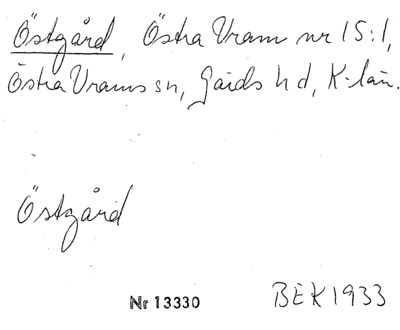 Östgård, Östra Vram nr 15:1,
Östra Vrams sn, Gärds hd, K-län.
Östgård
Nr 13330 BEK 1933